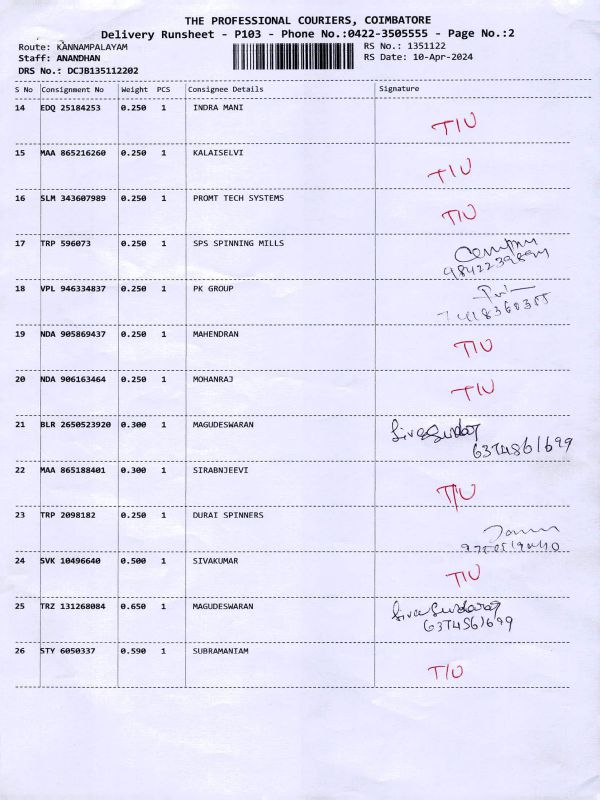 THE PROFESSIONAL COURIERS, COIMBATORE
Delivery Runsheet - P103 - Phone No.:0422-3505555 - Page No.:2
Route: KANNAMPALAYAM RS No.: 1351122
Staff: ANANDHAN RS Date: 10-Apr-2024
DRS No.: DCJB135112202
S No Consignment No Weight PCS Consignee Details Signature
14 EDQ 25184253 0.250 1 INDRA MANI T/U
15 MAA 865216260 0.250 1 KALAISELVI T/U
16 SLM 343607989 0.250 1 PROMT TECH SYSTEMS T/U
17 TRP 596073 0.250 1 SPS SPINNING MILLS
18 VPL 946334837 0.250 1 PK GROUP
19 NDA 905869437 0.250 1 MAHENDRAN T/U
20 NDA 906163464 0.250 1 MOHANRAJ T/U
21 BLR 2650523920 0.300 1 MAGUDESWARAN
6374561699
22 MAA 865188401 0.300 1 SIRABNJEEVI T/U
23 TRP 2098182 0.250 1 DURAI SPINNERS
24 SVK 10496640 0.500 1 SIVAKUMAR T/U
25 TRZ 131268084 0.650 1 MAGUDESWARAN
6374561699
26 STY 6050337 0.590 1 SUBRAMANIAM T/U